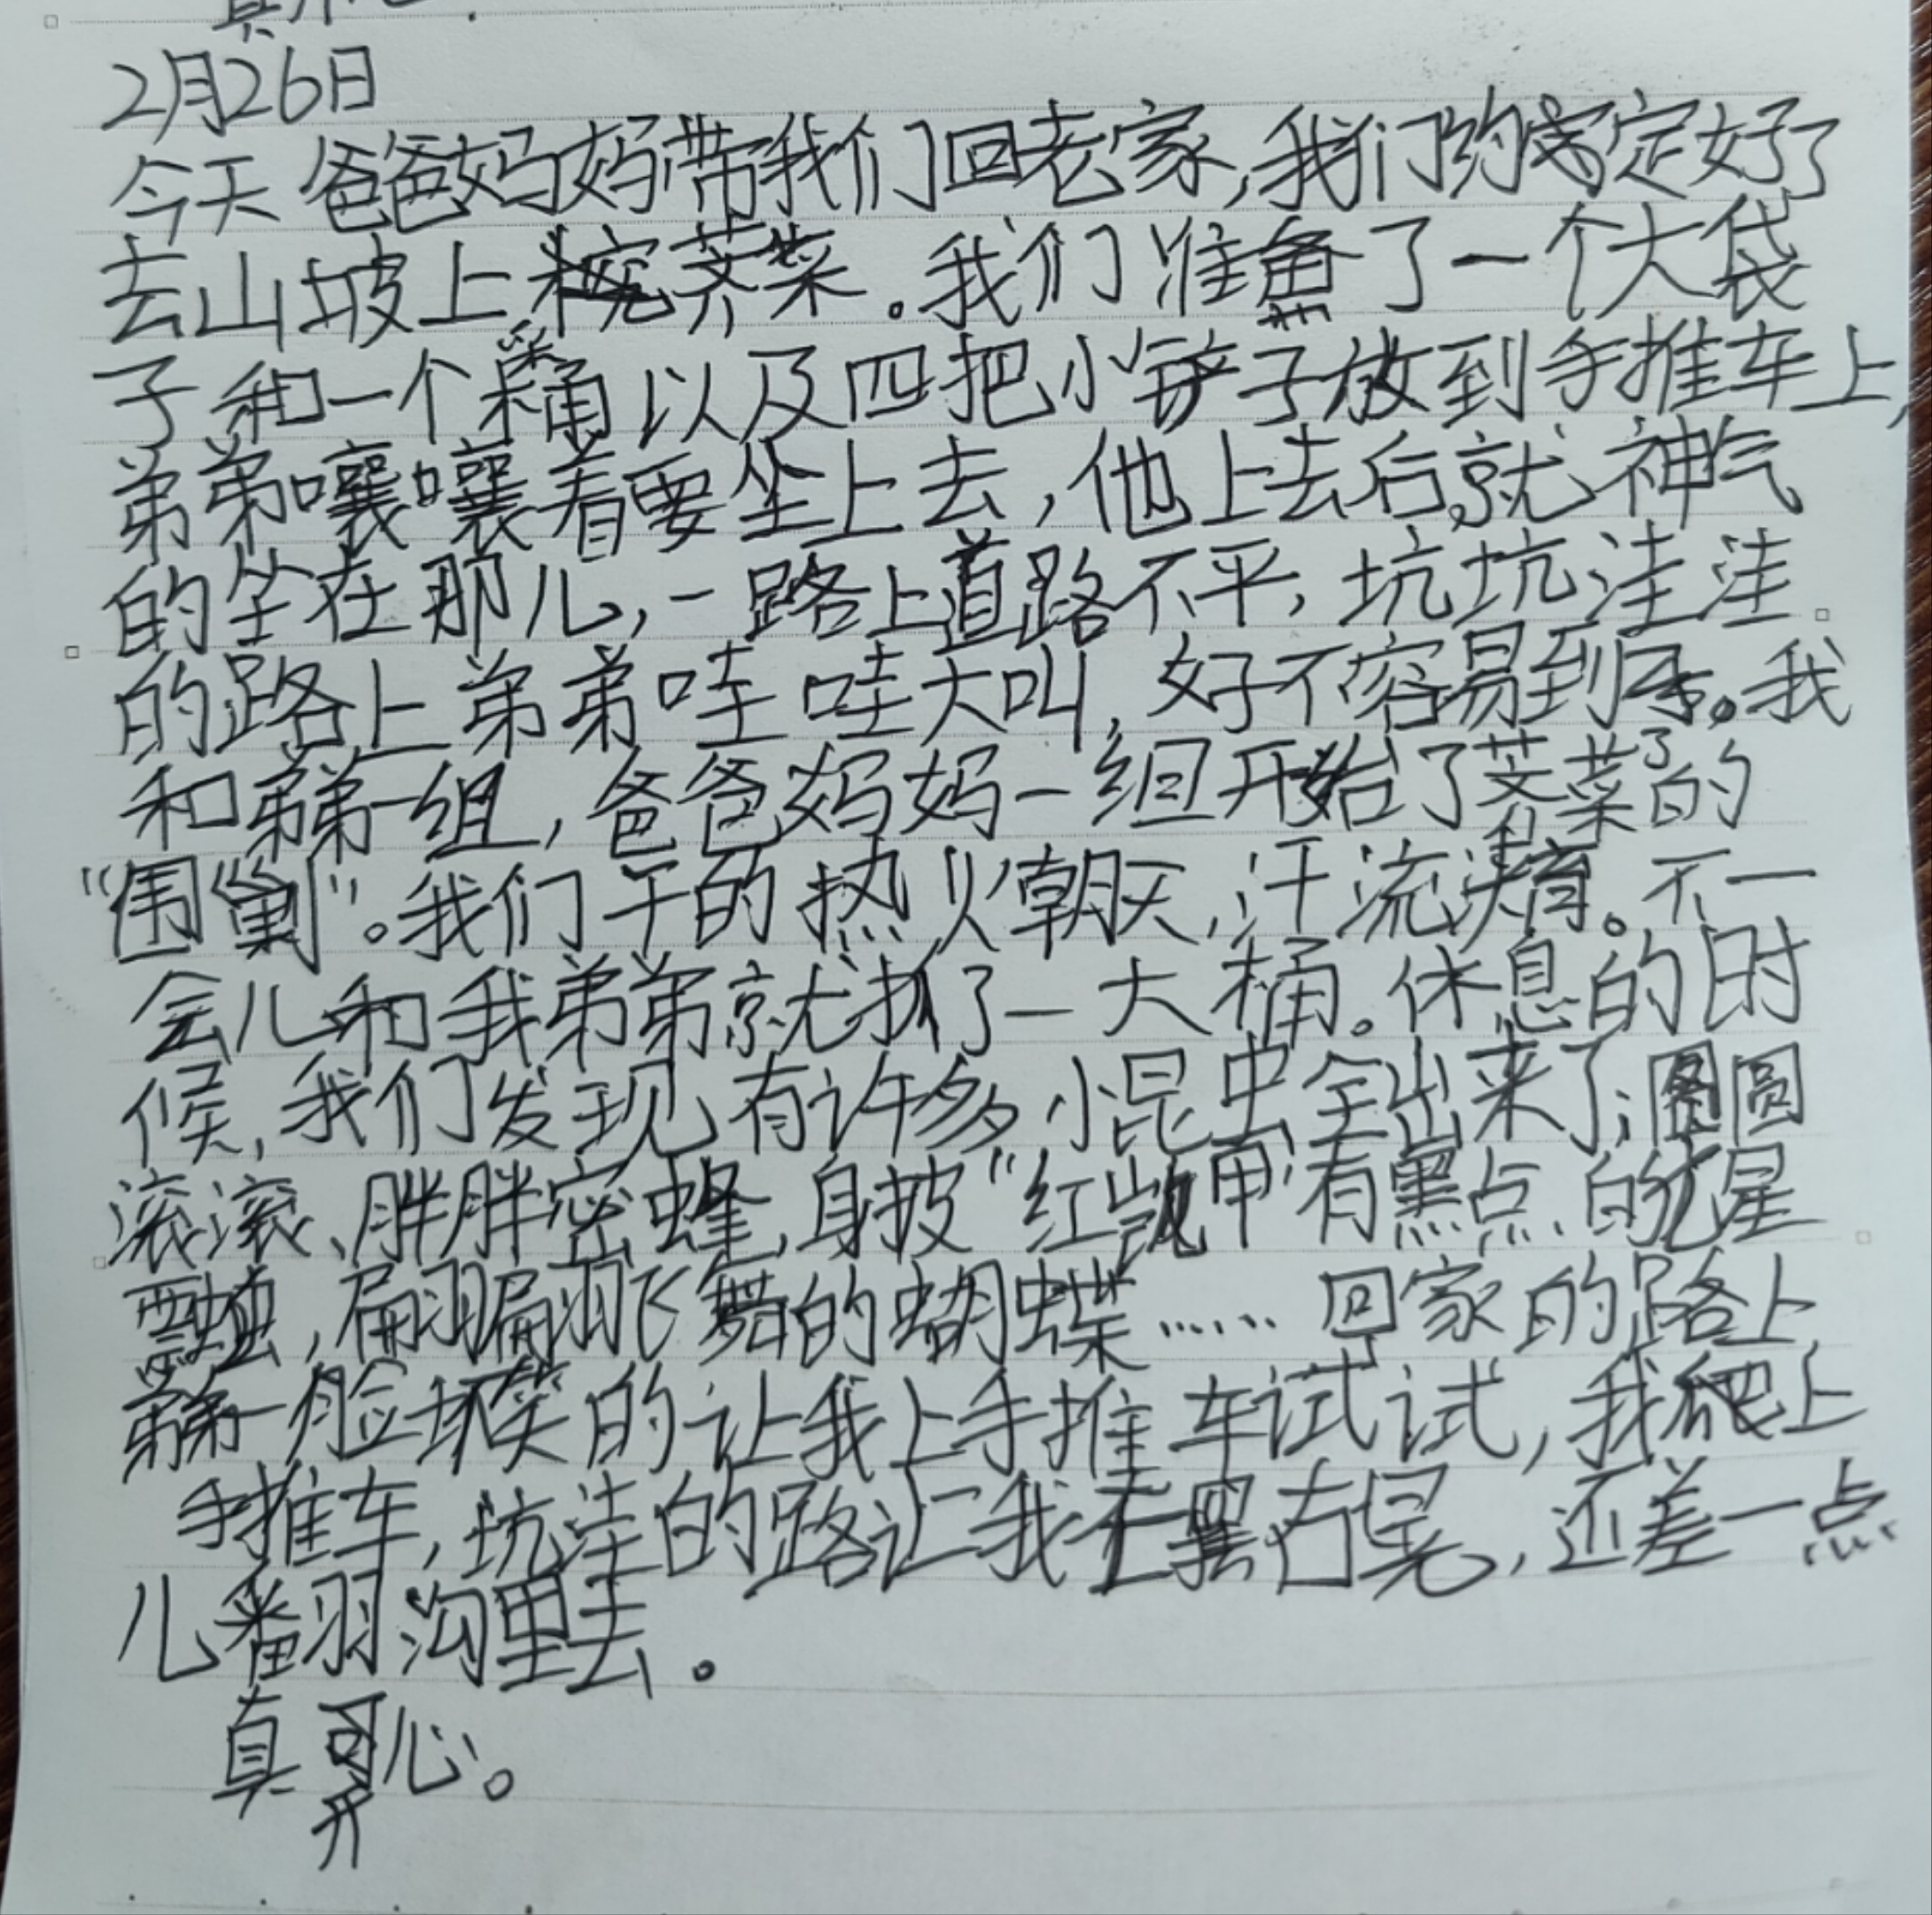 2月26日
今天爸爸妈妈带我们回老家,我们约定好了
去山坡上挖荠菜。我们准备了一个大袋
子和一个桶以及四把小铲子放到手推车上,
弟弟嚷嚷着要坐上去,他上去后就神气
的坐在那儿,一路上道路不平,坑坑洼洼
的路上弟弟哇哇大叫,好不容易到了。我
和弟弟一组,爸爸妈妈一组开始了荠菜的
“围剿”。我们干的热火朝天,汗流浃背。不一
会儿和我弟弟就挖了一大桶。休息的时
候,我们发现有许多小昆虫全出来了;圆圆
滚滚、胖胖密蜂,身披“红凯甲”有黑点的七星
瓢虫,翩翩飞舞的蝴蝶……回家的路上,
弟弟一脸坏笑的让我上手推车试试,我爬上
手推车,坑洼的路让我左摆右晃,还差一点
儿翻沟里去。
真开心。